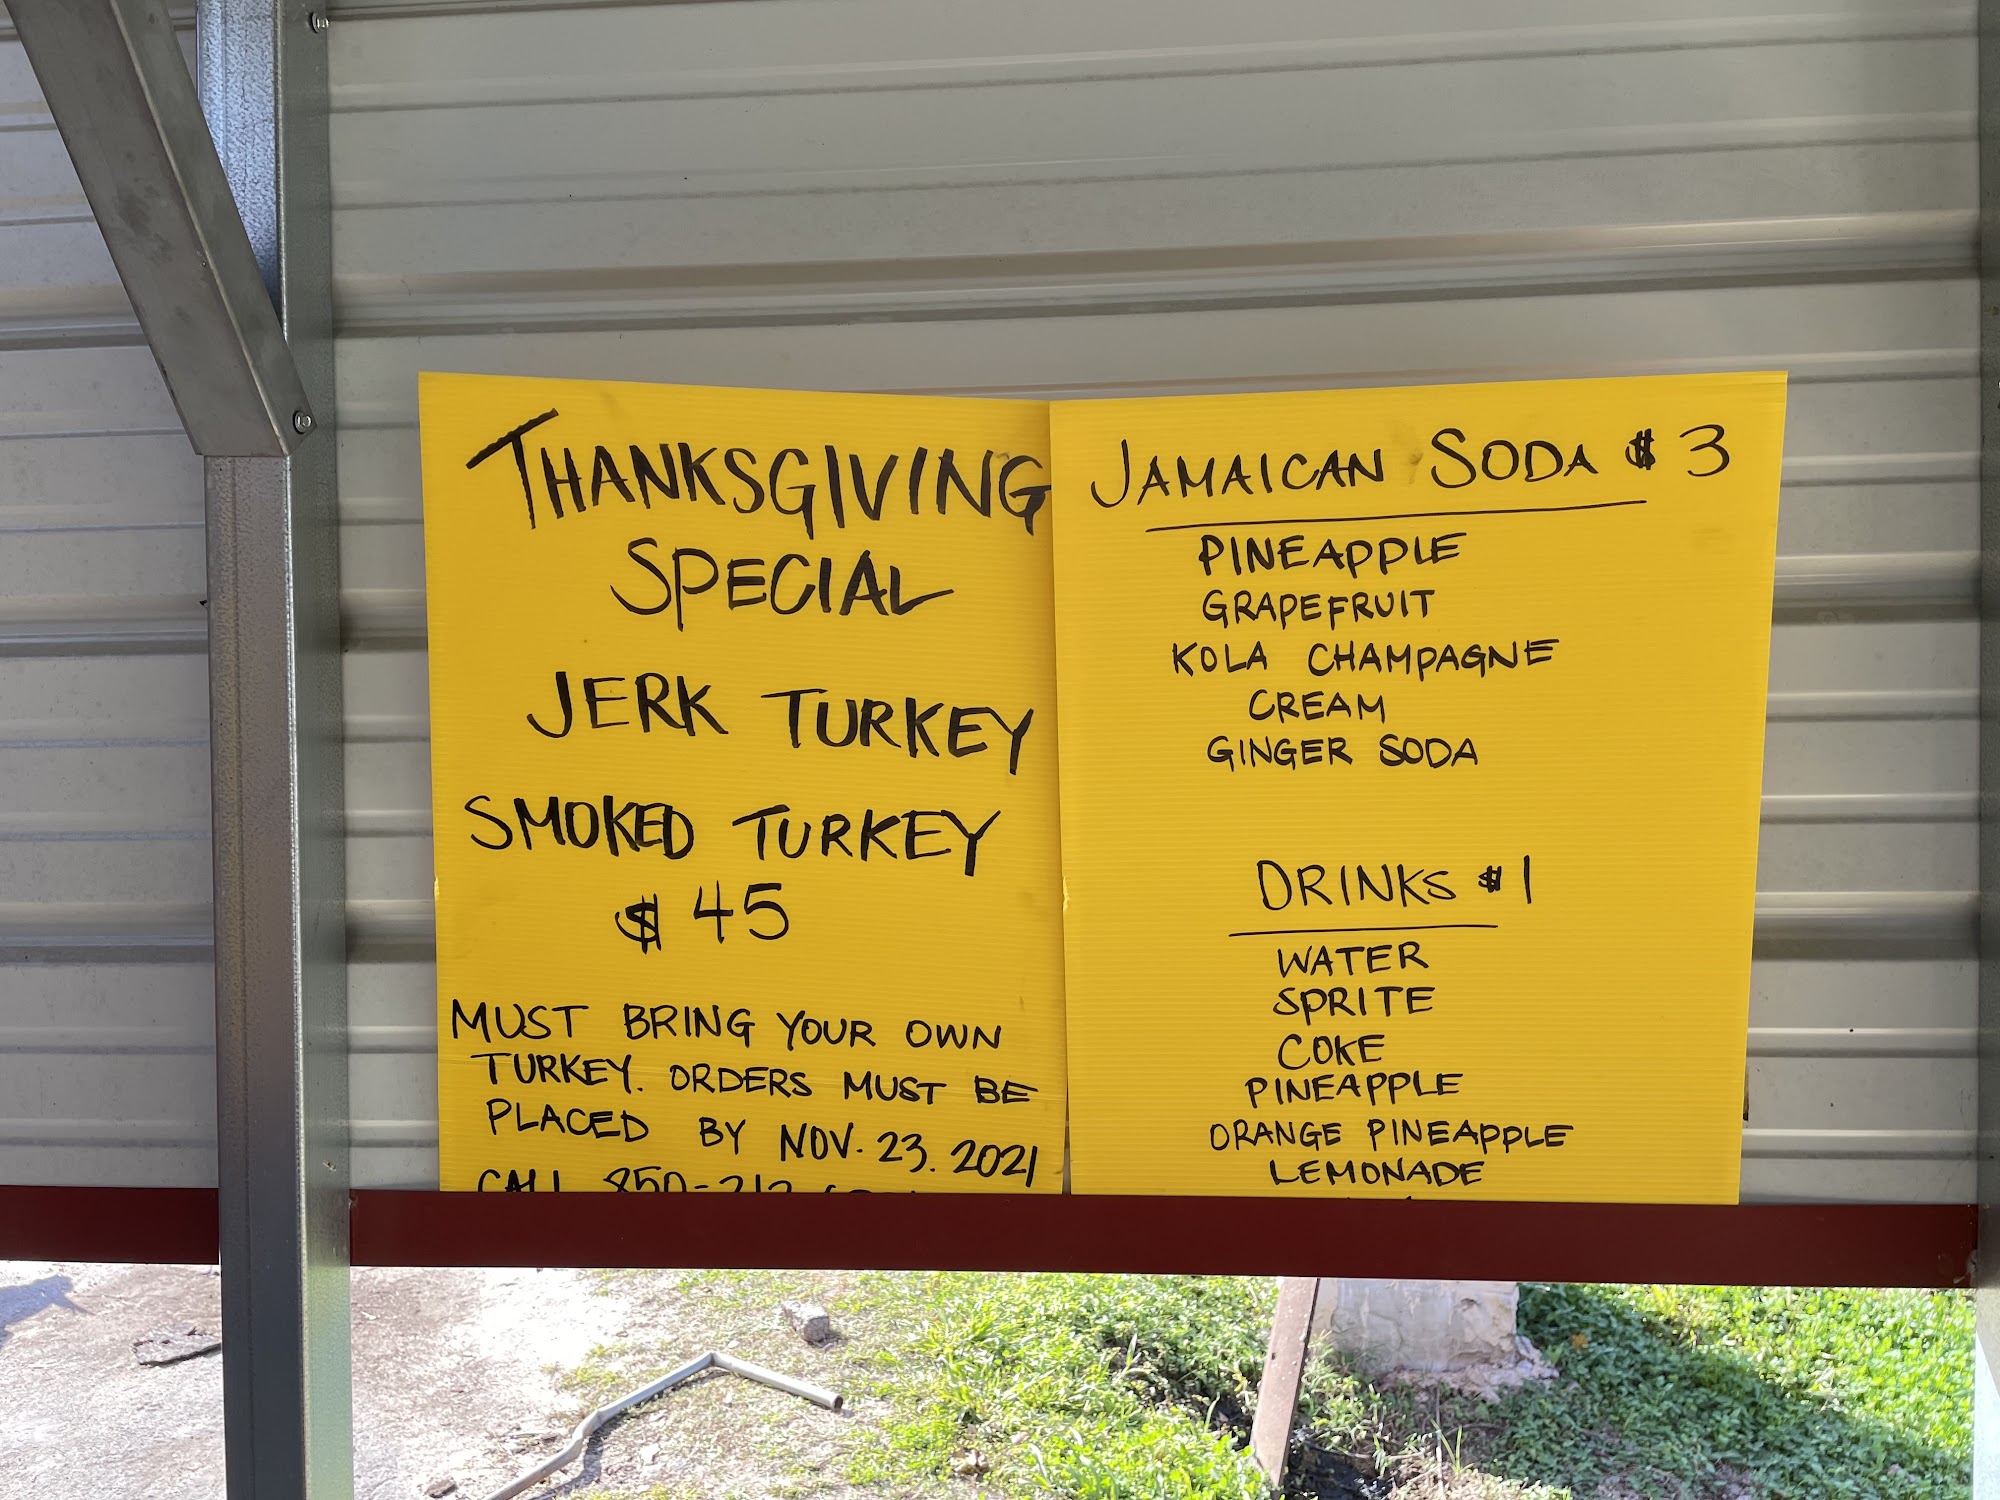 THANKSGIVING
SPECIAL
JERK TURKEY
SMOKED TURKEY
$ 45
MUST BRING YOUR OWN
TURKEY. ORDERS MUST BE
PLACED BY NOV. 23. 2021
CALL 850-212
JAMAICAN SODA $ 3
PINEAPPLE
GRAPEFRUIT
KOLA CHAMPAGNE
CREAM
GINGER SODA
DRINKS $ 1
WATER
SPRITE
COKE
PINEAPPLE
ORANGE PINEAPPLE
LEMONADE